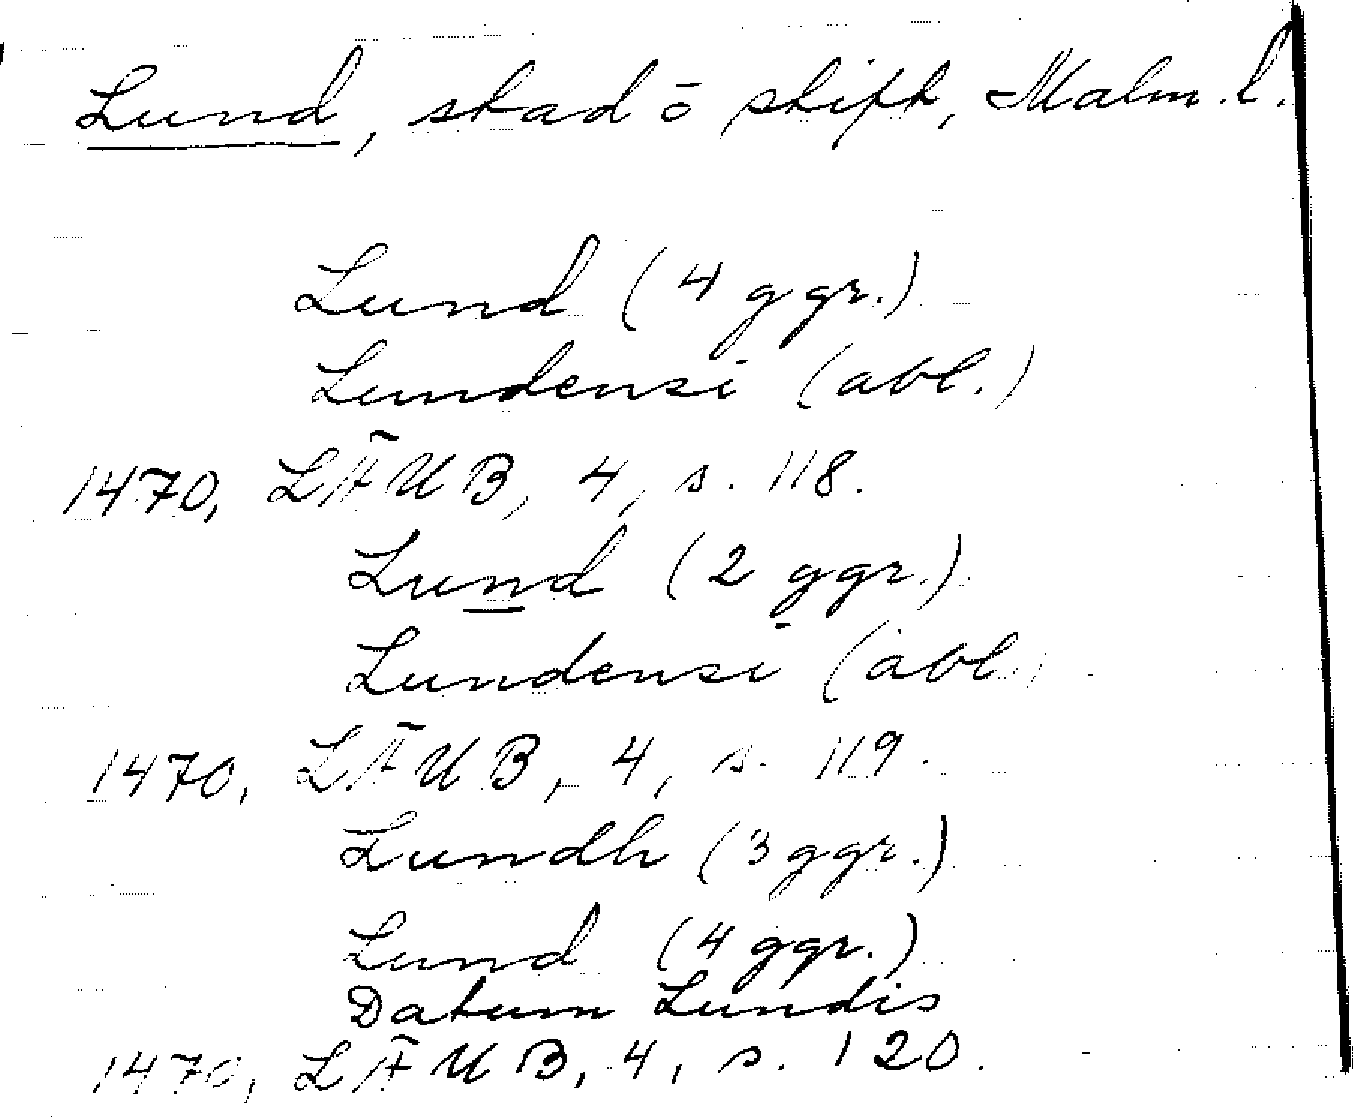 Lund, stad o̅ stift, Malm. l.
Lund (4 ggr.)
Lundensi (abl.)
1470, LÄUB, 4, s. 118.
Lund (2 ggr.)
Lundensi (abl.)
1470, LÄUB, 4, s. 119.
Lundh (3 ggr.)
Lund (4 ggr.)
Datum Lundis
1470, LÄUB, 4, s. 120.